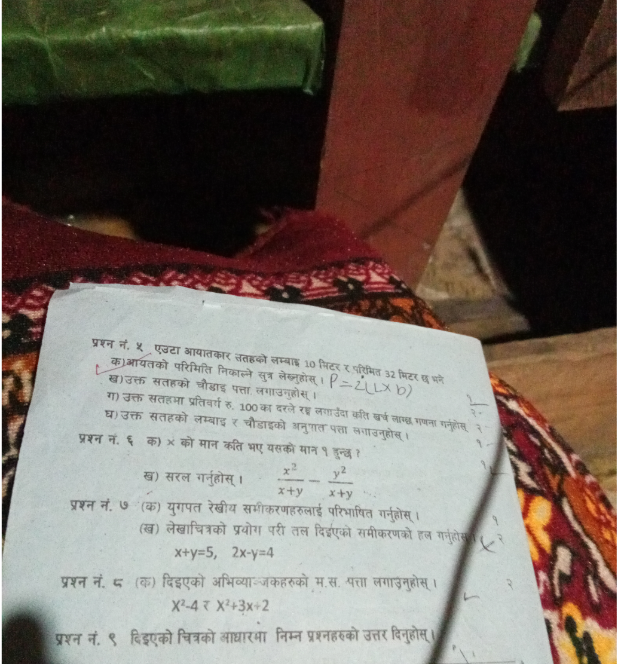 प्रश्न नं. ५ एउटा आयातकार सतहको लम्बाइ 10 मिटर र परिमित 32 मिटर छ भने
क)आयतको परिमिति निकाल्ने सुत्र लेख्नुहोस् । P = 2(L×b)
ख)उक्त सतहको चौडाइ पत्ता लगाउनुहोस् ।
ग) उक्त सतहमा प्रतिवर्ग रु. 100 का दरले रङ्ग लगाउँदा कति खर्च लाग्छ गणना गर्नुहोस् २
घ) उक्त सतहको लम्बाइ र चौडाइको अनुपात पत्ता लगाउनुहोस् । १
प्रश्न नं. ६ क) × को मान कति भए यसको मान १ हुन्छ ?
ख) सरल गर्नुहोस् । x²/x+y − y²/x+y
प्रश्न नं. ७ (क) युगपत रेखीय समीकरणहरुलाई परिभाषित गर्नुहोस् । १
(ख) लेखाचित्रको प्रयोग गरी तल दिइएको समीकरणको हल गर्नुहोस् २
x+y=5, 2x-y=4
प्रश्न नं. ८ (क) दिइएको अभिव्यान्जकहरुको म.स. पत्ता लगाउनुहोस् । २
X²-4 र X²+3x+2
प्रश्न नं. ९ दिइएको चित्रको आधारमा निम्न प्रश्नहरुको उत्तर दिनुहोस् ।